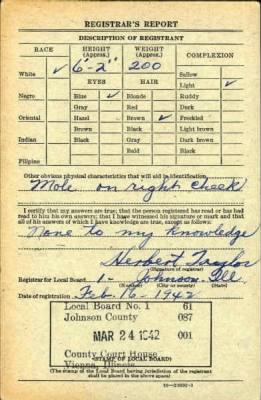 REGISTRAR'S REPORT
DESCRIPTION OF REGISTRANT
RACE HEIGHT (Approx.) WEIGHT (Approx.) COMPLEXION
White ✓ 6'-2" 200 Sallow
EYES HAIR Light ✓
Negro Blue ✓ Blonde Ruddy
Gray Red Dark
Oriental Hazel Brown ✓ Freckled
Brown Black Light brown
Indian Black Gray Dark brown
Bald Black
Filipino
Other obvious physical characteristics that will aid in identification
Mole on right cheek
I certify that my answers are true; that the person registered has read or has had
read to him his own answers; that I have witnessed his signature or mark and that
all of his answers of which I have knowledge are true, except as follows:
None to my knowledge
Herbert Traylor
(Signature of registrar)
Registrar for Local Board 1- Johnson Ill.
(Number) (City or county) (State)
Date of registration Feb. 16-1942
Local Board No. 1 61
Johnson County 087
MAR 24 1942 001
County Court House
Vienna, Illinois
(STAMP OF LOCAL BOARD)
(The stamp of the Local Board having jurisdiction of the registrant
shall be placed in the above space)